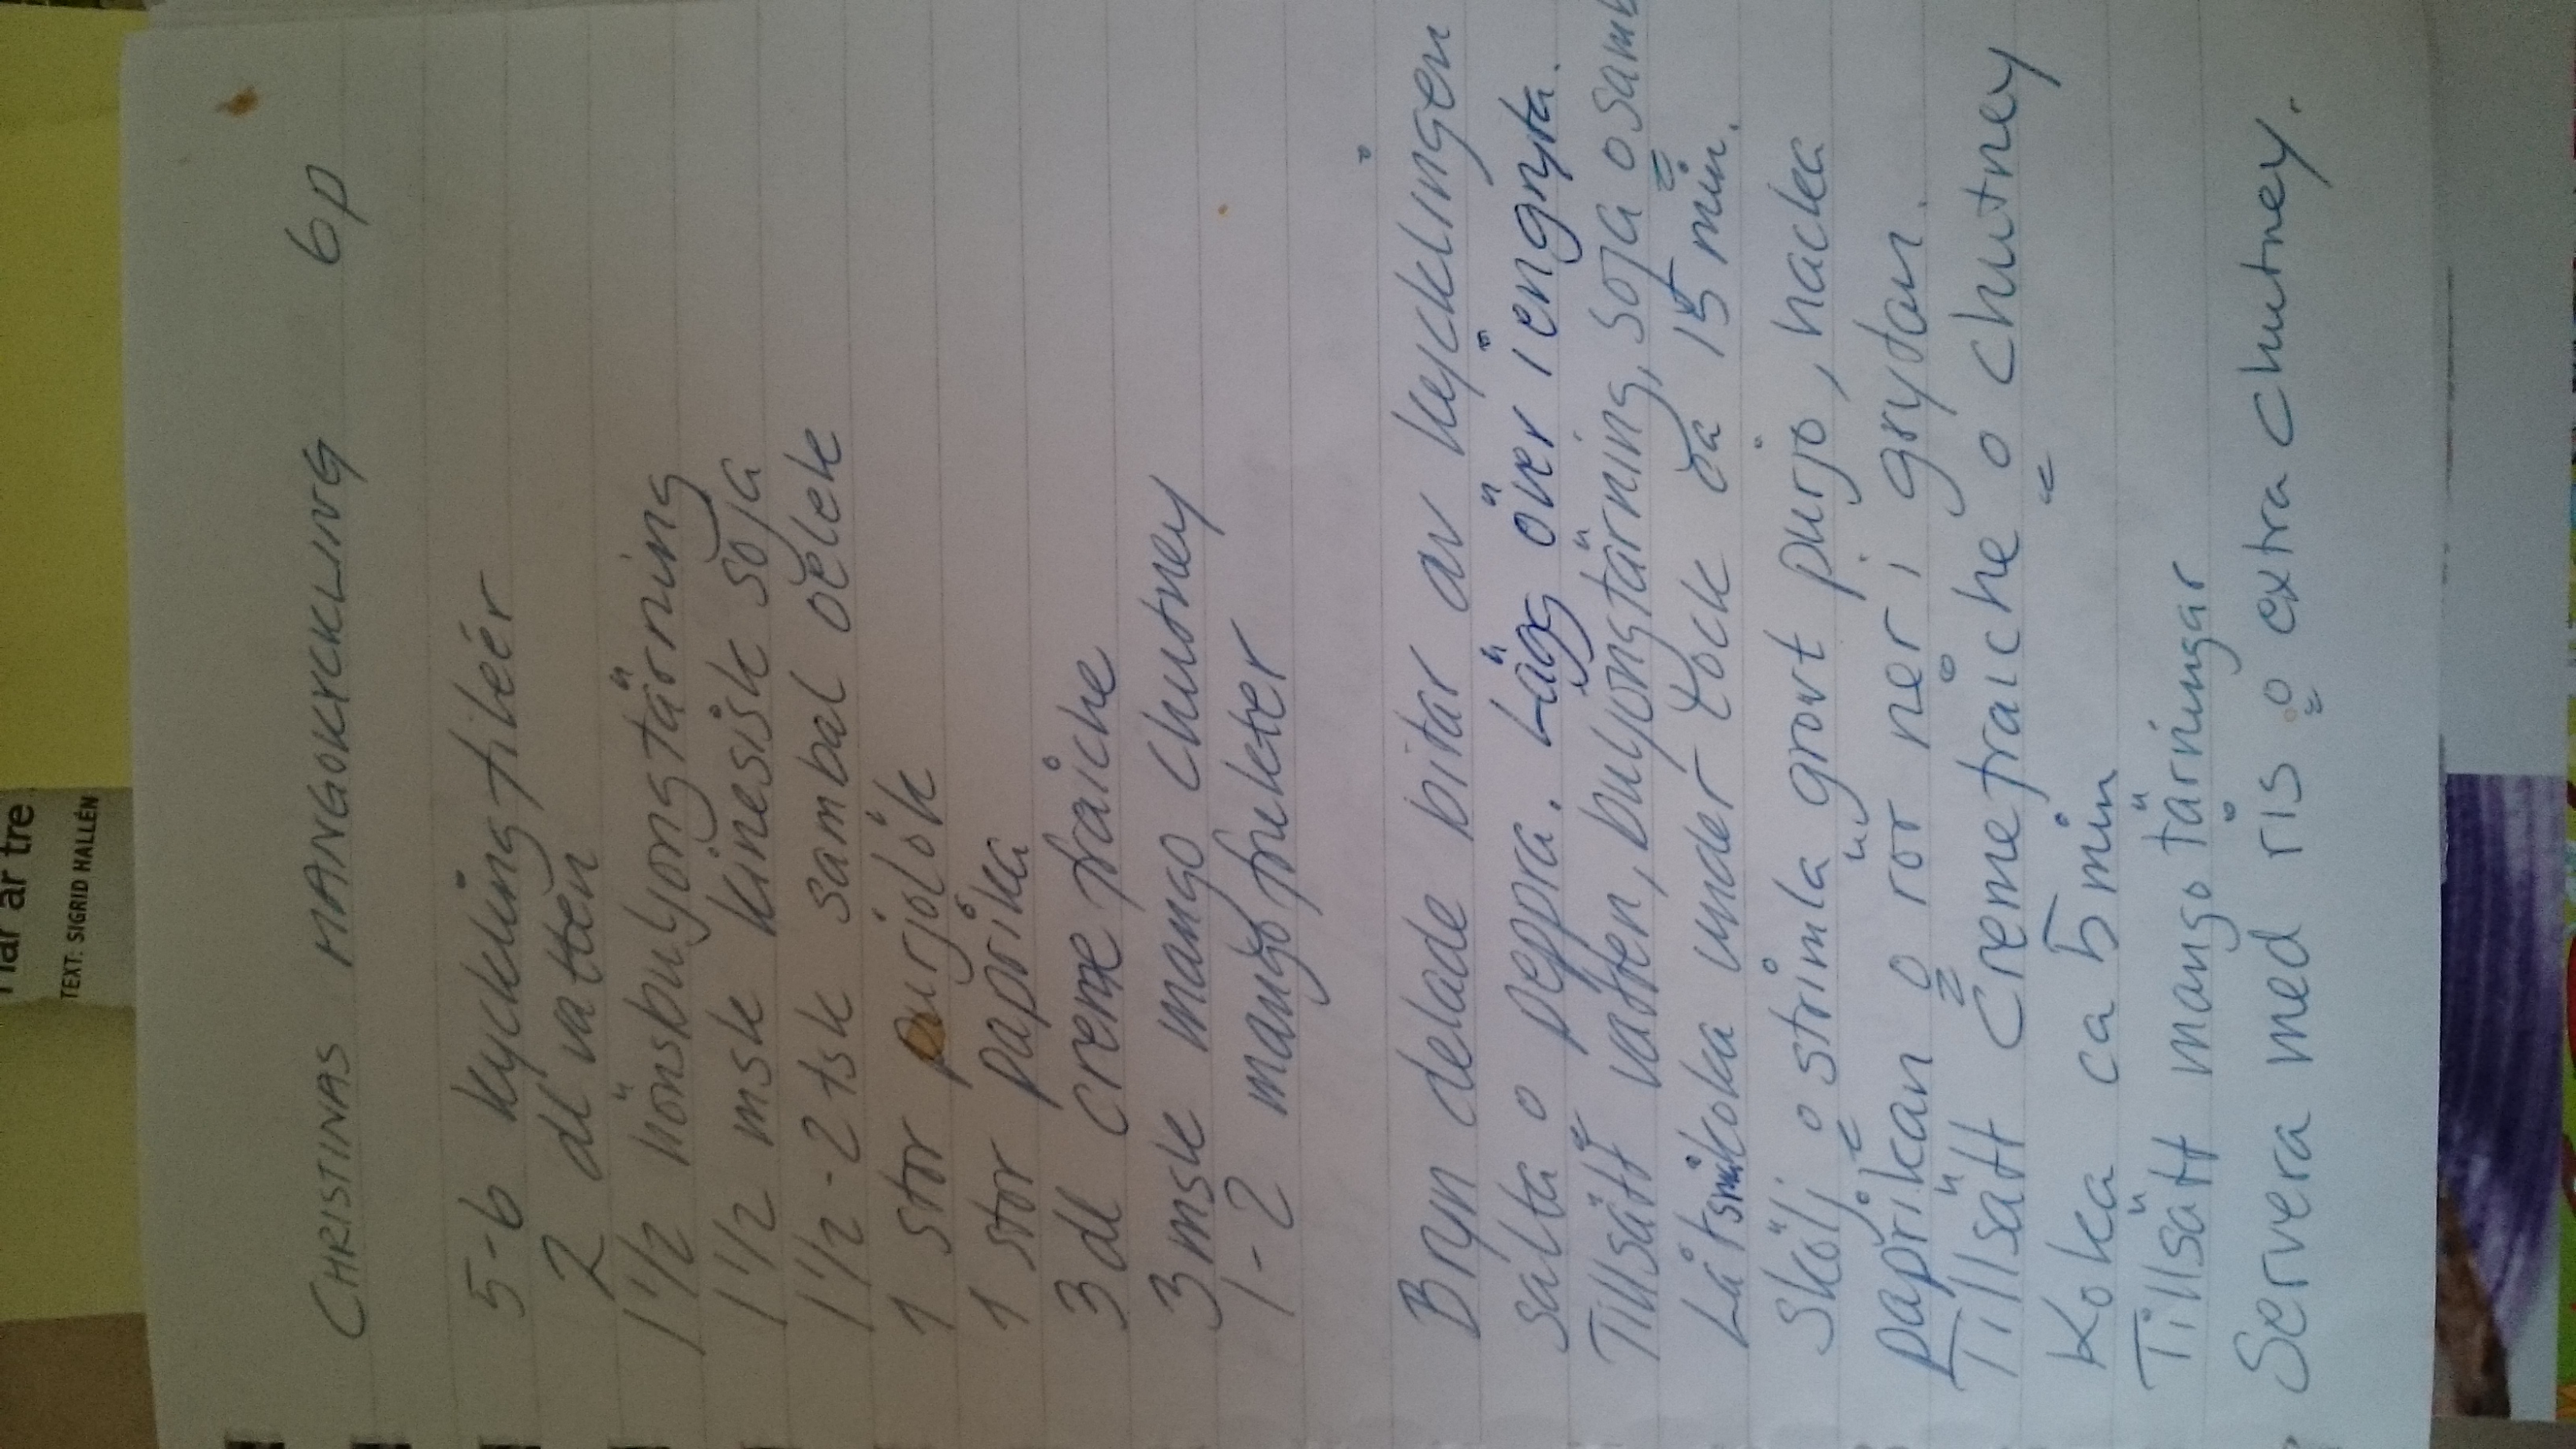 är tre
TEXT: SIGRID HALLÉN
CHRISTINAS MANGOKYCKLING 6p
5-6 kycklingfileér
2 dl vatten
1 1/2 hönsbuljongtärning
1 1/2 msk kinesisk soja
1 1/2-2 tsk sambal oelek
1 stor purjolök
1 stor paprika
3 dl creme fraiche
3 msk mango chutney
1-2 mangofrukter
Bryn delade bitar av kycklingen
salta o peppra. Lägg över i en gryta.
Tillsätt vatten, buljongtärning, soja o samb
Låt småkoka under lock ca 15 min.
Skölj o strimla grovt purjo, hacka
paprikan o rör ner i grytan.
Tillsätt Cremefraiche o chutney
Koka ca 5 min
Tillsätt mango tärningar
Servera med ris o extra chutney.